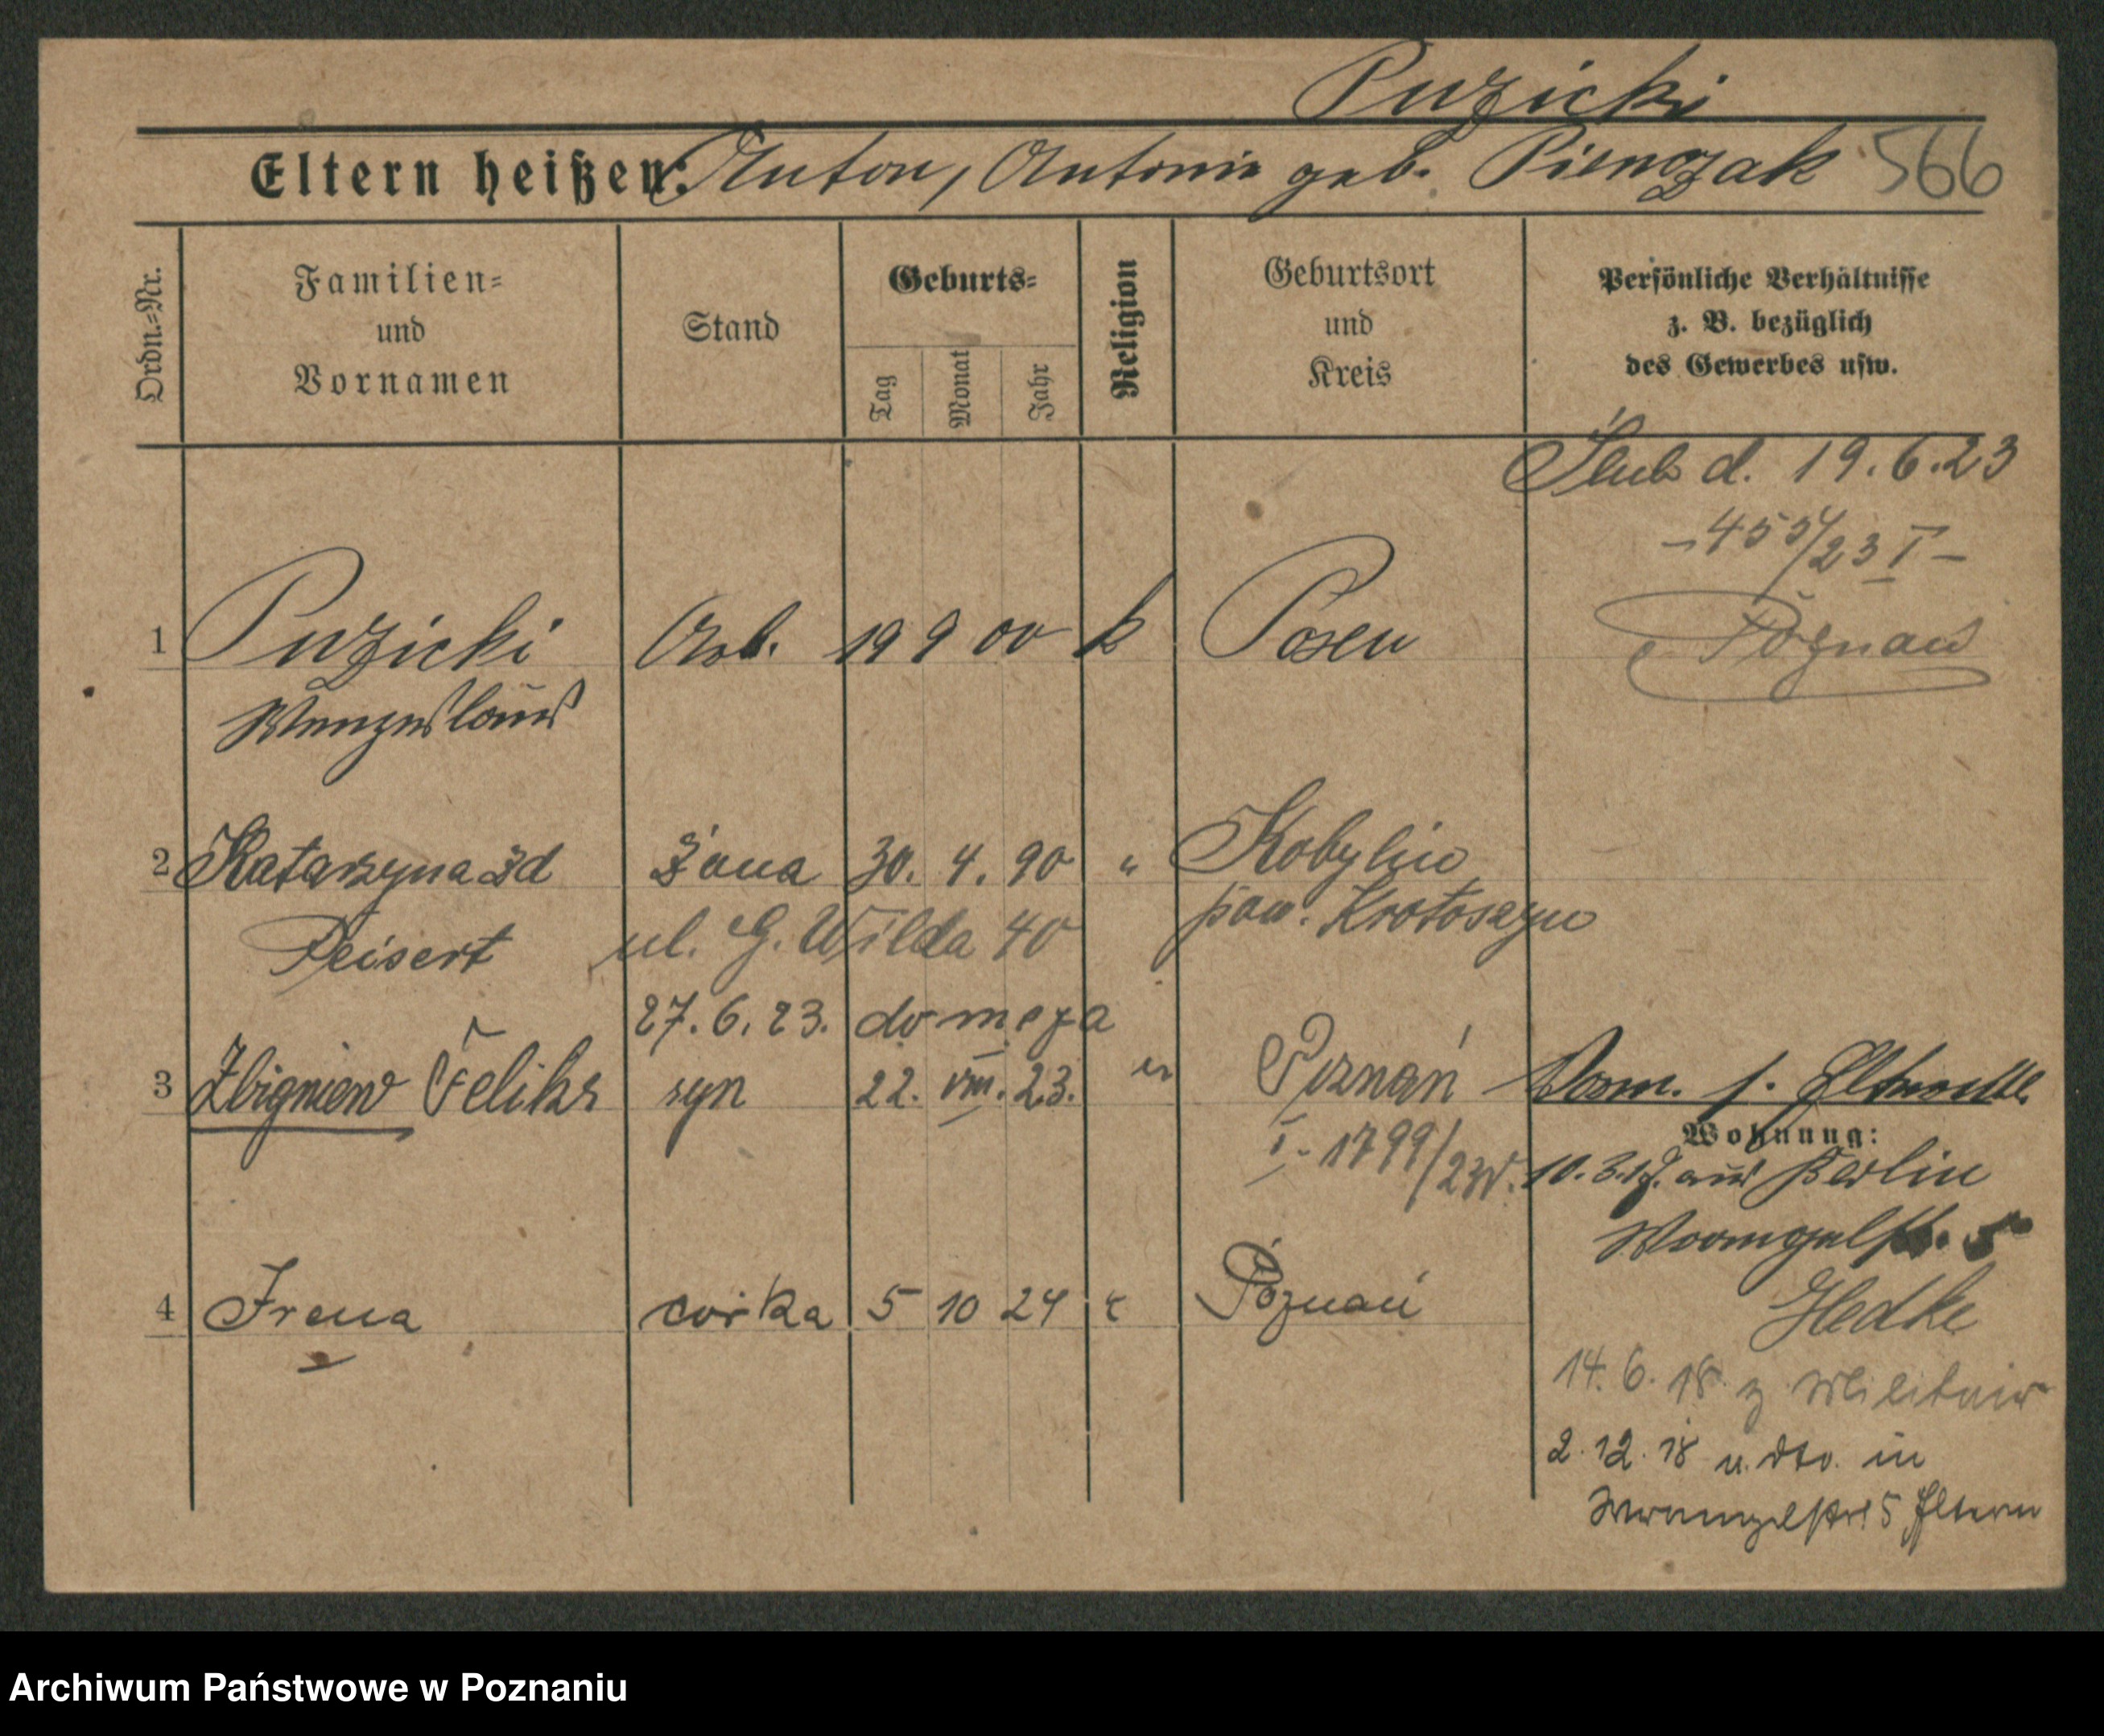 Puzicki
Eltern heißen: Anton, Antonie geb. Pienczak 566
Ordn.-Nr.
Familien- und Vornamen
Stand
Geburts-
Tag Monat Jahr
Religion
Geburtsort und Kreis
Persönliche Verhältnisse z. B. bezüglich des Gewerbes usw.
Ślub d. 19.6.23
- 455/23 I -
Poznań
1 Puzicki Arb. 19 9 00 k Posen
Wenzeslaus
2 Katarzyna zd żona 30. 4. 90 " Kobylin
Peisert ul. G. Wilda 40 pow. Krotoszyn
27.6.23. do męża
3 Zbigniew Feliks syn 22. VIII. 23. " Poznań
I - 1799/23
Wohnung:
10.3.17. aus Berlin
Wrangelstr. 5
Hedke
4 Irena córka 5 10 24 " Poznań
14.6.18 z Militair
2.12.18 v. dto. in
Wrangelstr. 5 Eltern
Archiwum Państwowe w Poznaniu